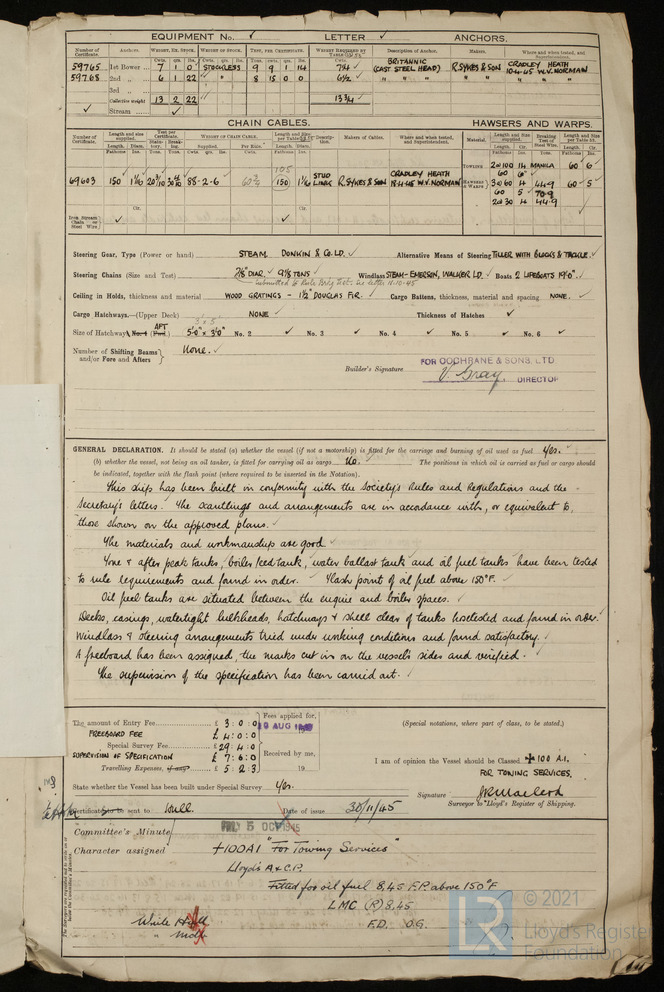 EQUIPMENT No. ✓ LETTER ✓ ANCHORS.
Number of Certificate. Anchors. WEIGHT, EX. STOCK. WEIGHT OF STOCK. TEST, PER CERTIFICATE. WEIGHT REQUIRED BY Description of Anchor. Makers. Where and when tested, and Superintendent.
59765 1st Bower 7 1 0 STOCKLESS 9 9 1 14 7¼ BRITANNIC (CAST STEEL HEAD) R. SYKES & SON CRADLEY HEATH
59768 2nd „ 6 1 22 " 8 15 0 0 6½ " " " " " 10-4-45 W.V. NORMAN
3rd „
Collective weight 13 2 22 13¾
✓ Stream
CHAIN CABLES. HAWSERS AND WARPS.
Number of Certificate. Length and size supplied. Test per Certificate. WEIGHT OF CHAIN CABLE. Length and size per Description. Makers of Cables. Where and when tested, and Superintendent. Material. Length and Size supplied. Breaking Test of Steel Wire. Length and Size per
Length. Diam. Supplied. Per Rule. Length. Diam. Length. Cir. Length. Cir.
TOWLINE 2@100 14 MANILA 60 6
105 60 6
69603 150 1 1/16 88-2-6 60¾ 150 1 1/16 STUD LINK R. SYKES & SON CRADLEY HEATH 18-4-45 W.V. NORMAN HAWSERS & WARPS 3@60 4 44.9 60 5
60 5 70.9
2@30 4 44.9
Iron Stream Chain or Steel Wire
Steering Gear, Type (Power or hand) STEAM DONKIN & CO. LD. ✓ Alternative Means of Steering TILLER WITH BLOCKS & TACKLE. ✓
Steering Chains (Size and Test) 7/8" DIAR. ✓ 9 1/8 TONS ✓ Windlass STEAM-EMERSON, WALKER LD. ✓ Boats 2 LIFEBOATS 19'0". ✓
Ceiling in Holds, thickness and material WOOD GRATINGS – 1½" DOUGLAS FIR. ✓ Cargo Battens, thickness, material and spacing NONE. ✓
Cargo Hatchways.—(Upper Deck) NONE ✓ Thickness of Hatches ✓
Size of Hatchways No. 1 (Fwd.) AFT 5'0" × 3'0" No. 2 ✓ No. 3 ✓ No. 4 ✓ No. 5 ✓ No. 6 ✓
Number of Shifting Beams and/or Fore and Afters } None. ✓
Builder's Signature FOR COCHRANE & SONS, LTD
V. Gray DIRECTOR
GENERAL DECLARATION. It should be stated (a) whether the vessel (if not a motorship) is fitted for the carriage and burning of oil used as fuel Yes. ✓
(b) whether the vessel, not being an oil tanker, is fitted for carrying oil as cargo No. ✓ The positions in which oil is carried as fuel or cargo should
be indicated, together with the flash point (where required to be inserted in the Notation).
This ship has been built in conformity with the Society's Rules and Regulations and the
Secretary's letters. The scantlings and arrangements are in accordance with, or equivalent to,
those shown on the approved plans. ✓
The materials and workmanship are good ✓
Fore & after peak tanks, boiler feed tank, water ballast tank and oil fuel tanks have been tested
to rule requirements and found in order. ✓ Flash point of oil fuel above 150°F. ✓
Oil fuel tanks are situated between the engine and boiler spaces. ✓
Decks, casings, watertight bulkheads, hatchways & shell clear of tanks hosetested and found in order.
Windlass & steering arrangements tried under working conditions and found satisfactory. ✓
A freeboard has been assigned, the marks cut in on the vessel's sides and verified. ✓
The supervision of the specification has been carried out. ✓
The amount of Entry Fee £ 3 : 0 : 0 Fees applied for,
FREEBOARD FEE £ 4 : 0 : 0
Special Survey Fee £ 29 : 4 : 0
SUPERVISION OF SPECIFICATION £ 7 : 6 : 0 Received by me,
Travelling Expenses, if any £ 5 : 2 : 3 19
(Special notations, where part of class, to be stated.)
I am of opinion the Vessel should be Classed ✠ 100 A.1.
FOR TOWING SERVICES.
State whether the Vessel has been built under Special Survey Yes.
Signature
Surveyor to Lloyd's Register of Shipping.
Certificate to be sent to Hull. Date of issue 30/11/45
Committee's Minute FRI. 5 OCT 1945
Character assigned +100A1 "For Towing Services"
Lloyd's A & C.P.
Fitted for oil fuel 8,45 F.P. above 150°F
LMC (R) 8.45
F.D. O.G.
Write Hull
© 2021
Lloyd's Register
Foundation
LR